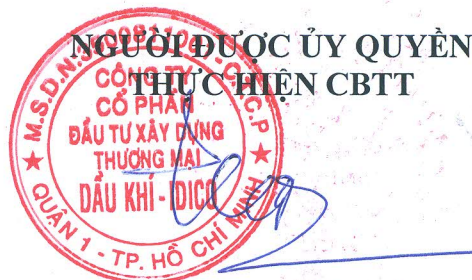 NGƯỜI ĐƯỢC ỦY QUYỀN
THỰC HIỆN CBTT
CÔNG TY
CỔ PHẦN
ĐẦU TƯ XÂY DỰNG
THƯƠNG MẠI
DẦU KHÍ - IDICO
QUẬN 1 - TP. HỒ CHÍ MINH